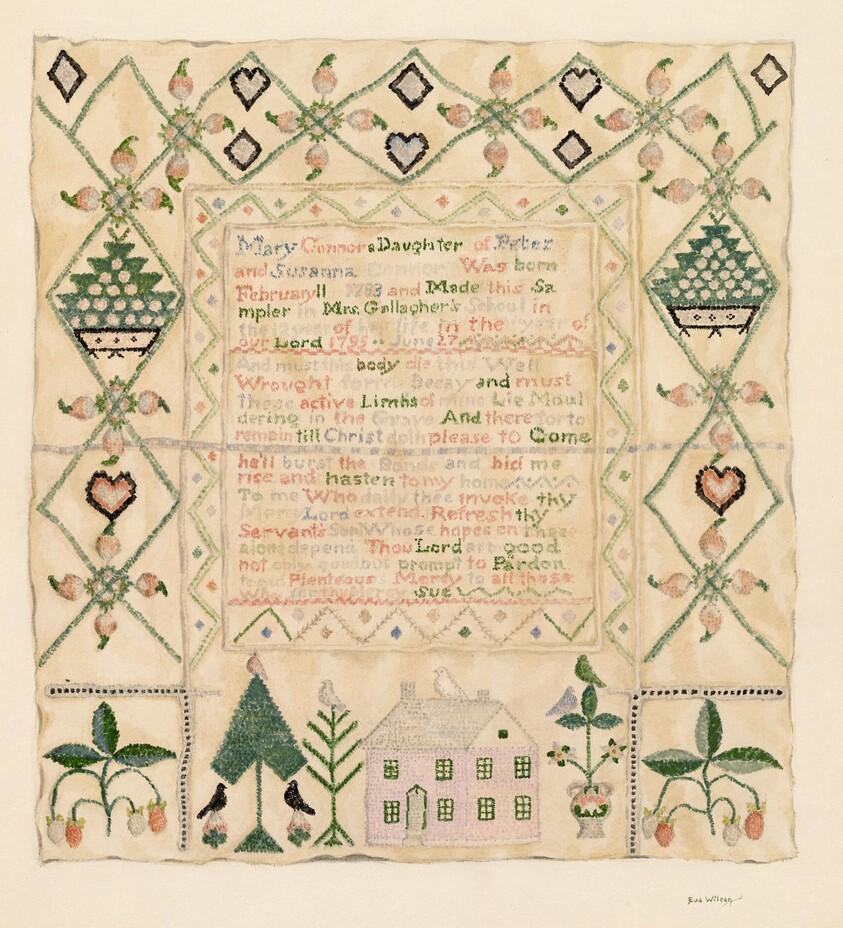 Mary Connor a Daughter of Peter
and Susanna Connor Was born
February 11 1783 and Made this Sa
mpler in Mrs. Gallagher's School in
the 12 year of her life in the year of
our Lord 1795 June 27
And must this body die this Well
Wrought form Decay and must
these active Limbs of mine Lie Moul
dering in the Grave And there for to
remain till Christ doth please to Come
he'll burst the Bonds and bid me
rise and hasten to my home
To me Who daily thee invoke thy
Lord extend. Refresh thy
Servant's Soul Whose hopes on Thee
alone depend Thou Lord art good
not only good but prompt to Pardon
Plenteous Mercy to all those
Who for thy Mercy Sue
Eva Wilson